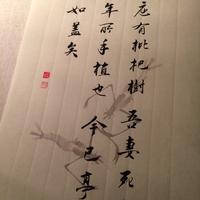 庭有枇杷樹吾妻死
年所手植也今已亭
如蓋矣